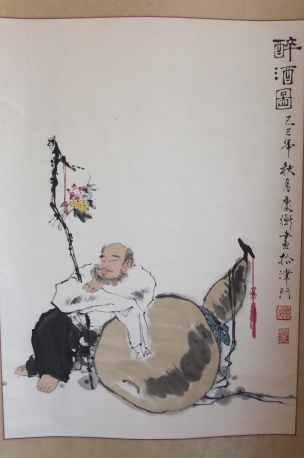 醉酒圖
己巳年秋月慶衛畫於津門